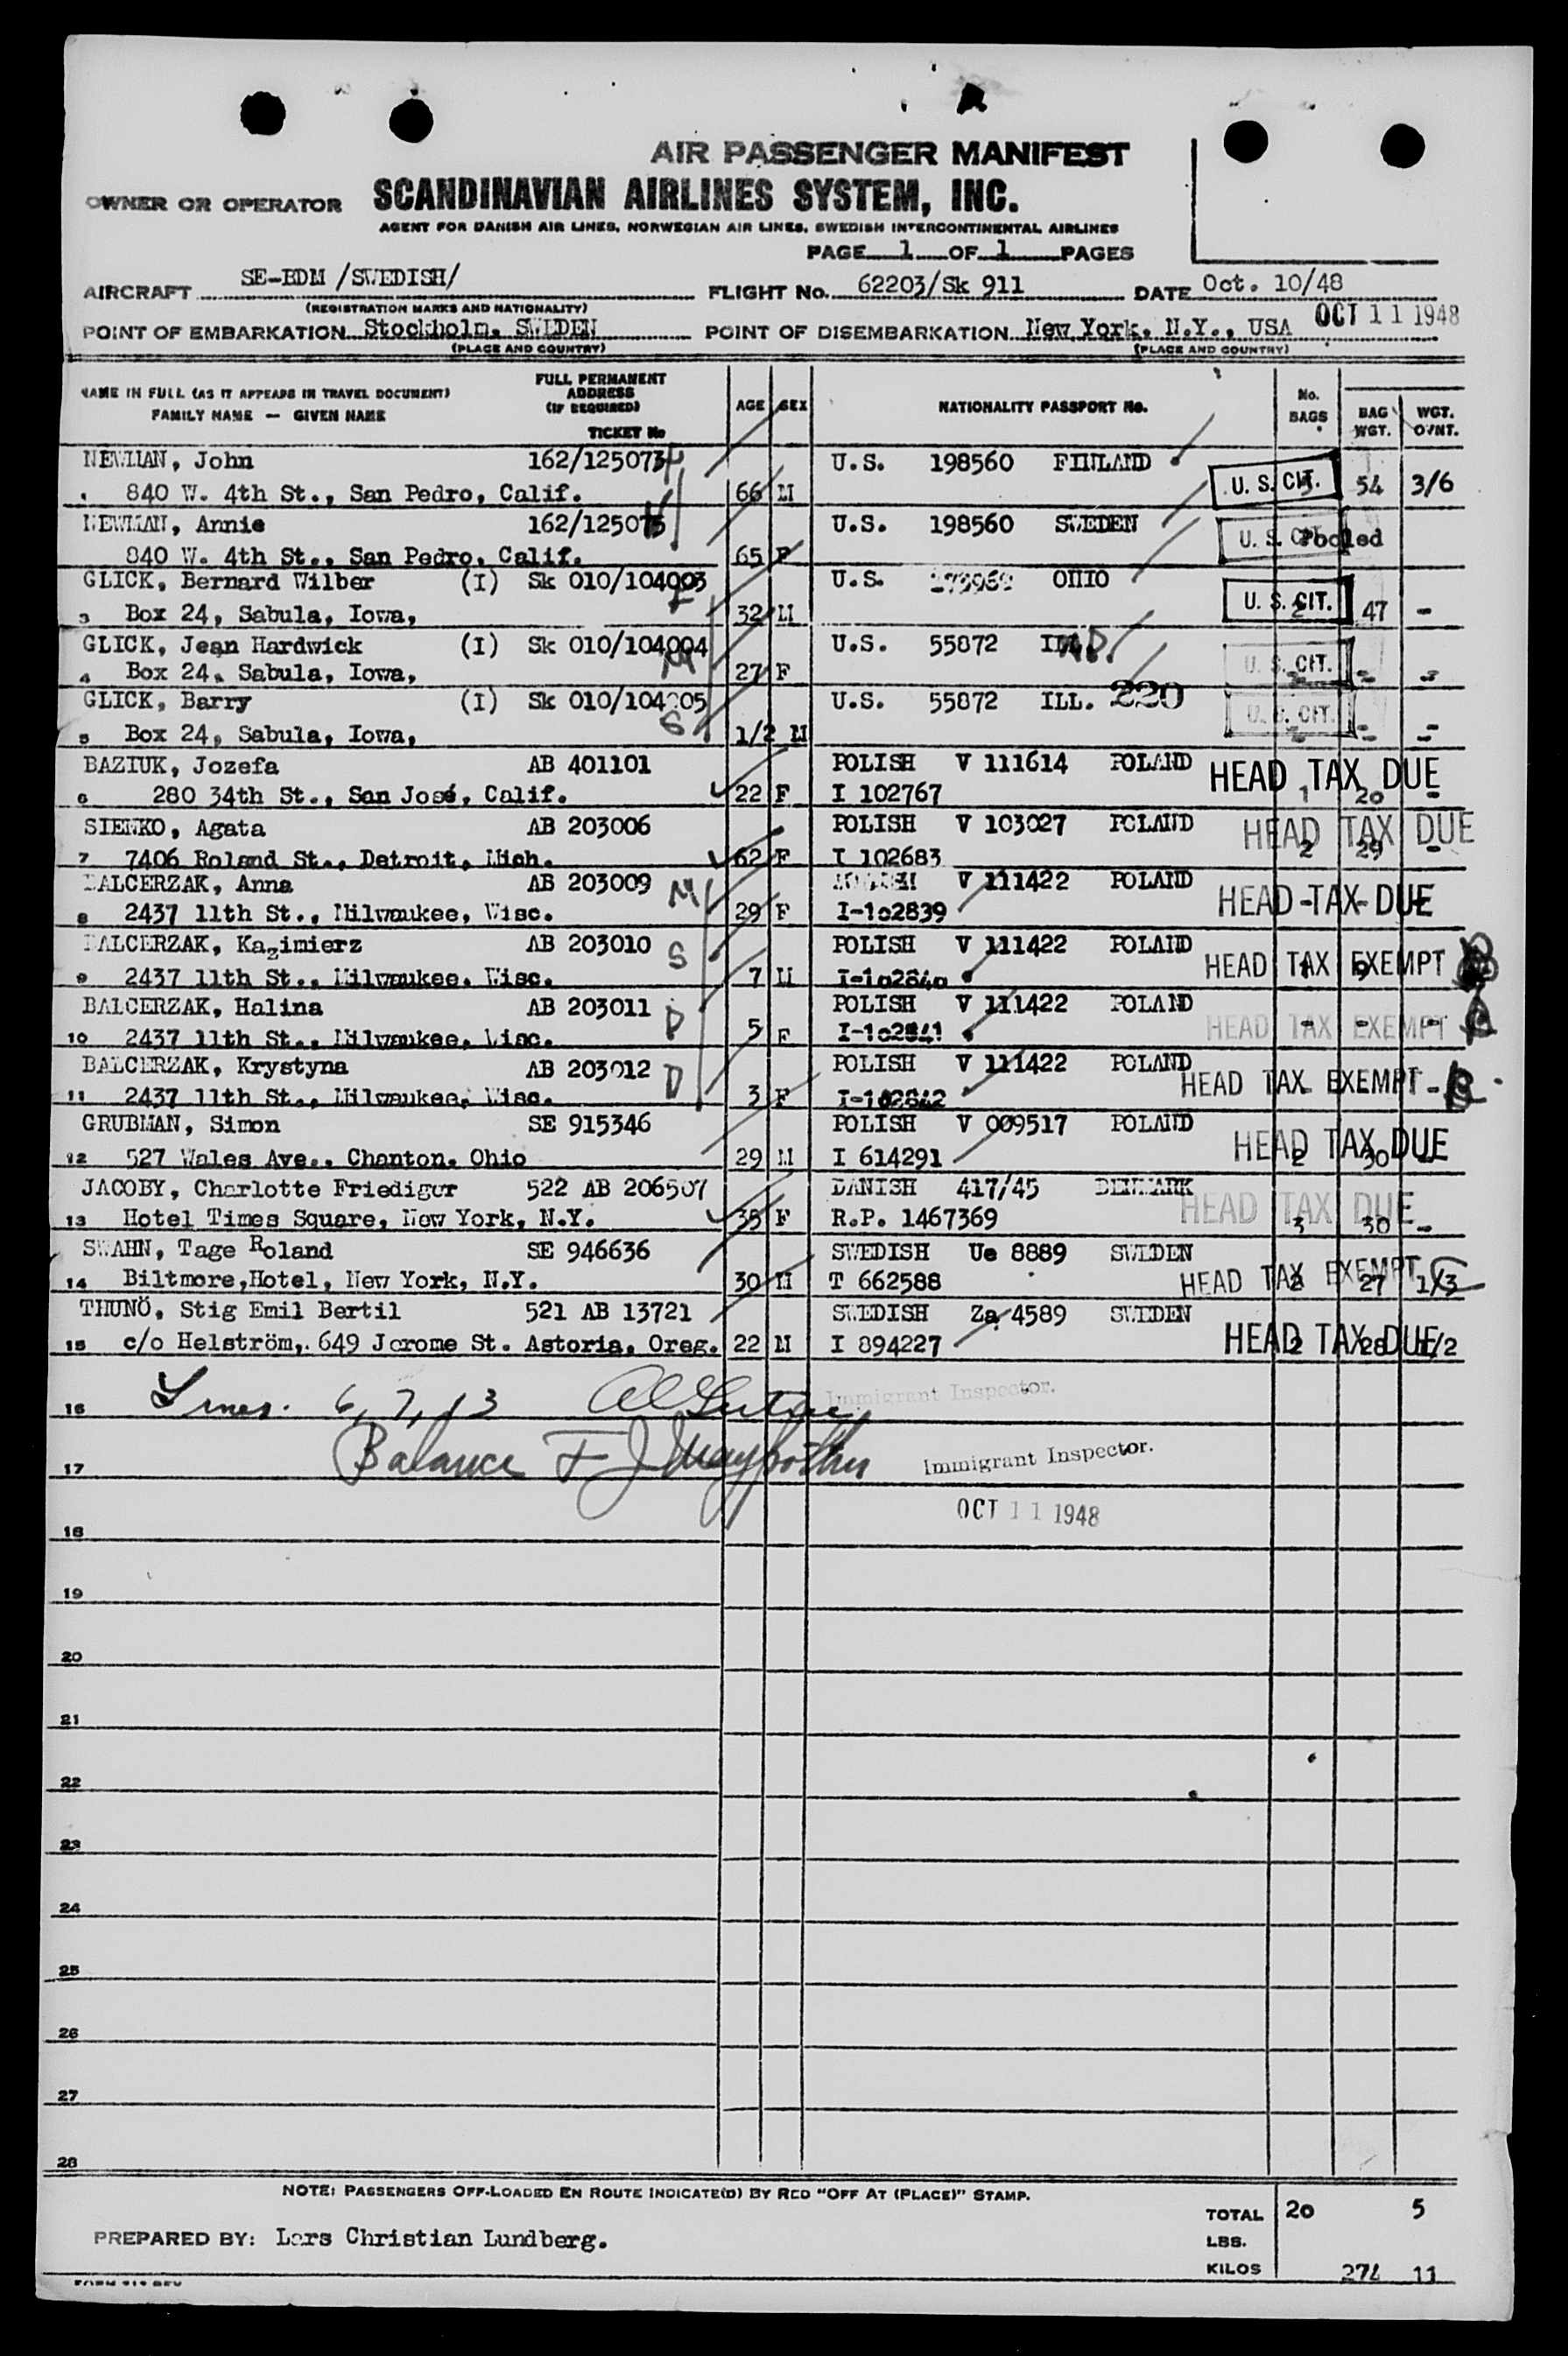 AIR PASSENGER MANIFEST
OWNER OR OPERATOR SCANDINAVIAN AIRLINES SYSTEM, INC.
AGENT FOR DANISH AIR LINES, NORWEGIAN AIR LINES, SWEDISH INTERCONTINENTAL AIRLINES
PAGE 1 OF 1 PAGES
AIRCRAFT SE-BDM /SWEDISH/ FLIGHT No. 62203/Sk 911 DATE Oct. 10/48
(REGISTRATION MARKS AND NATIONALITY)
OCT 11 1948
POINT OF EMBARKATION Stockholm, SWEDEN POINT OF DISEMBARKATION New York, N.Y., USA
(PLACE AND COUNTRY) (PLACE AND COUNTRY)
NAME IN FULL (AS IT APPEARS IN TRAVEL DOCUMENT) FAMILY NAME — GIVEN NAME
FULL PERMANENT ADDRESS (IF REQUIRED) TICKET No
AGE SEX NATIONALITY PASSPORT No. No. BAGS BAG WGT. WGT. OVNT.
NEWMAN, John 162/125074 U.S. 198560 FINLAND
1 840 W. 4th St., San Pedro, Calif. 66 M U.S. CIT. 54 3/6
NEWMAN, Annie 162/125075 U.S. 198560 SWEDEN U.S. CIT. Pooled
840 W. 4th St., San Pedro, Calif. 65 F
GLICK, Bernard Wilber (I) Sk 010/104003 U.S. OHIO
3 Box 24, Sabula, Iowa, 32 M U.S. CIT. 2 47 -
GLICK, Jean Hardwick (I) Sk 010/104004 M U.S. 55872 ILL.
4 Box 24, Sabula, Iowa, 27 F U.S. CIT. - - -
GLICK, Barry (I) Sk 010/104005 S U.S. 55872 ILL. 220
5 Box 24, Sabula, Iowa, 1/2 M U.S. CIT. - - -
BAZIUK, Jozefa AB 401101 POLISH V 111614 POLAND HEAD TAX DUE
6 280 34th St., San José, Calif. 22 F I 102767 1 20 -
SIENKO, Agata AB 203006 POLISH V 103027 POLAND HEAD TAX DUE
7 7406 Roland St., Detroit, Mich. 62 F I 102683 2 29 -
BALCERZAK, Anna AB 203009 M V 111422 POLAND HEAD TAX DUE
8 2437 11th St., Milwaukee, Wisc. 29 F I-102839 - - -
BALCERZAK, Kazimierz AB 203010 S POLISH V 111422 POLAND HEAD TAX EXEMPT
9 2437 11th St., Milwaukee, Wisc. 7 M I-102840 1 9
BALCERZAK, Halina AB 203011 D POLISH V 111422 POLAND HEAD TAX EXEMPT
10 2437 11th St., Milwaukee, Wisc. 5 F I-102841 - - -
BALCERZAK, Krystyna AB 203012 D POLISH V 111422 POLAND HEAD TAX EXEMPT
11 2437 11th St., Milwaukee, Wisc. 3 F I-102842 - - -
GRUBMAN, Simon SE 915346 POLISH V 009517 POLAND HEAD TAX DUE
12 527 Wales Ave., Chanton, Ohio 29 M I 614291 2 30
JACOBY, Charlotte Friediger 522 AB 206507 DANISH 417/45 DENMARK HEAD TAX DUE
13 Hotel Times Square, New York, N.Y. 35 F R.P. 1467369 3 30 -
SWAHN, Tage Roland SE 946636 SWEDISH Ue 8889 SWEDEN HEAD TAX EXEMPT
14 Biltmore,Hotel, New York, N.Y. 30 M T 662588 2 27 1/3
THUNÖ, Stig Emil Bertil 521 AB 13721 SWEDISH Za 4589 SWEDEN HEAD TAX DUE
15 c/o Helström, 649 Jerome St. Astoria, Oreg. 22 M I 894227 2 28 1/2
16 Lines. 6, 7, 13 Immigrant Inspector.
17 Balance F J Immigrant Inspector.
OCT 11 1948
18
19
20
21
22
23
24
25
26
27
28
NOTE: PASSENGERS OFF-LOADED EN ROUTE INDICATE(D) BY RED "OFF AT (PLACE)" STAMP.
PREPARED BY: Lars Christian Lundberg.
TOTAL 20 5
LBS.
KILOS 274 11